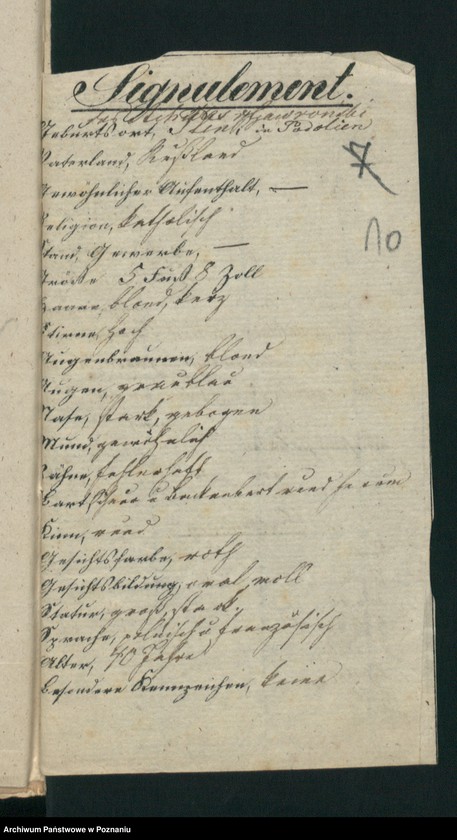 Signalement.
Geburtsort, in Podolien
Vaterland, Rußland
Gewöhnlicher Aufenthalt, —
Religion, katholisch
Stand, Gewerbe, —
Größe 5 Fuß 8 Zoll
Haare, blond, kurz
Stirne, hoch
Augenbraunen, blond
Augen, graublau
Nase, stark, gebogen
Mund, gewöhnlich
Zähne, fehlerhaft
Bart, u Backenbart rund herum
Kinn, rund
Gesichtsfarbe, roth
Gesichtsbildung, oval, voll
Statur, groß, stark.
Sprache, polnisch u französisch
Alter, 40 Jahre
Besondere Kennzeichen, keine
7
10
Archiwum Państwowe w Poznaniu